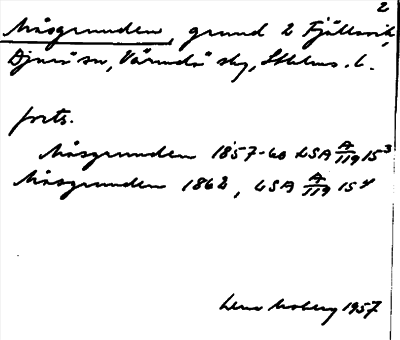 2
Måsgrunden, grund i Fjällsvik,
Djurö sn, Värmdö skg, Sthlms. l.
forts.
Måsgrunden 1857-60 LSA A/119 15³
Måsgrunden 1862, LSA A/119 15⁴
Lena Moberg 1957